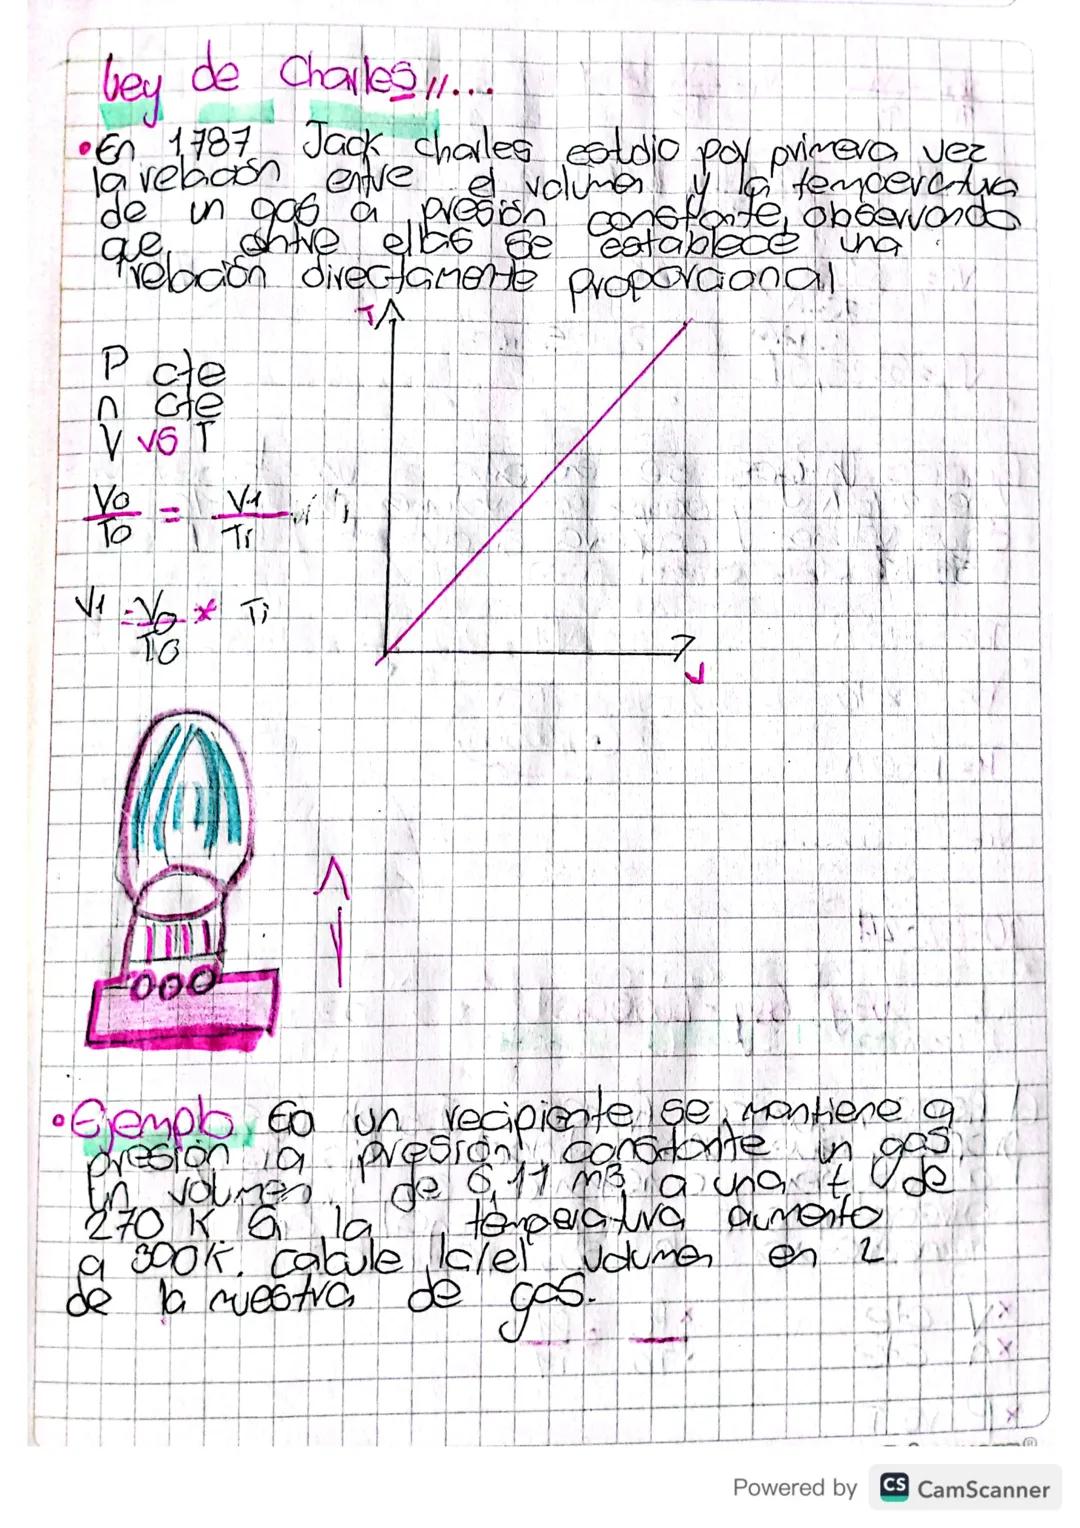 Ley de Charles //...
• En 1787 Jack charles estdio por primera vez
la relación entre el volumen y la temperatura
de un gas a presión constante, observando
que entre ellas se establece una
relación directamente proporcional
T
P cte
n cte
V vs T
Vo/To = V1/Ti
V1 = Vo/To * Ti
V
• Ejemplo En un recipiente se mantiene a
presión la presión constante un gas,
un volumen de 6,11 m3 a una t de
270 K. Si la temperatura aumento
a 300K. calcule lc/el volumen en 2
de la muestra de gas.
Powered by CS CamScanner